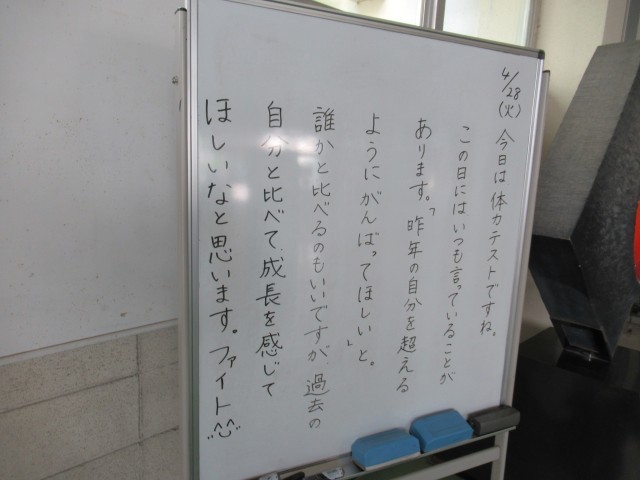 4/28(火) 今日は体力テストですね。
この日にはいつも言っていることが
あります。「昨年の自分を超える
ようにがんばってほしい」と。
誰かと比べるのもいいですが、過去の
自分と比べて、成長を感じて
ほしいなと思います。ファイト^^